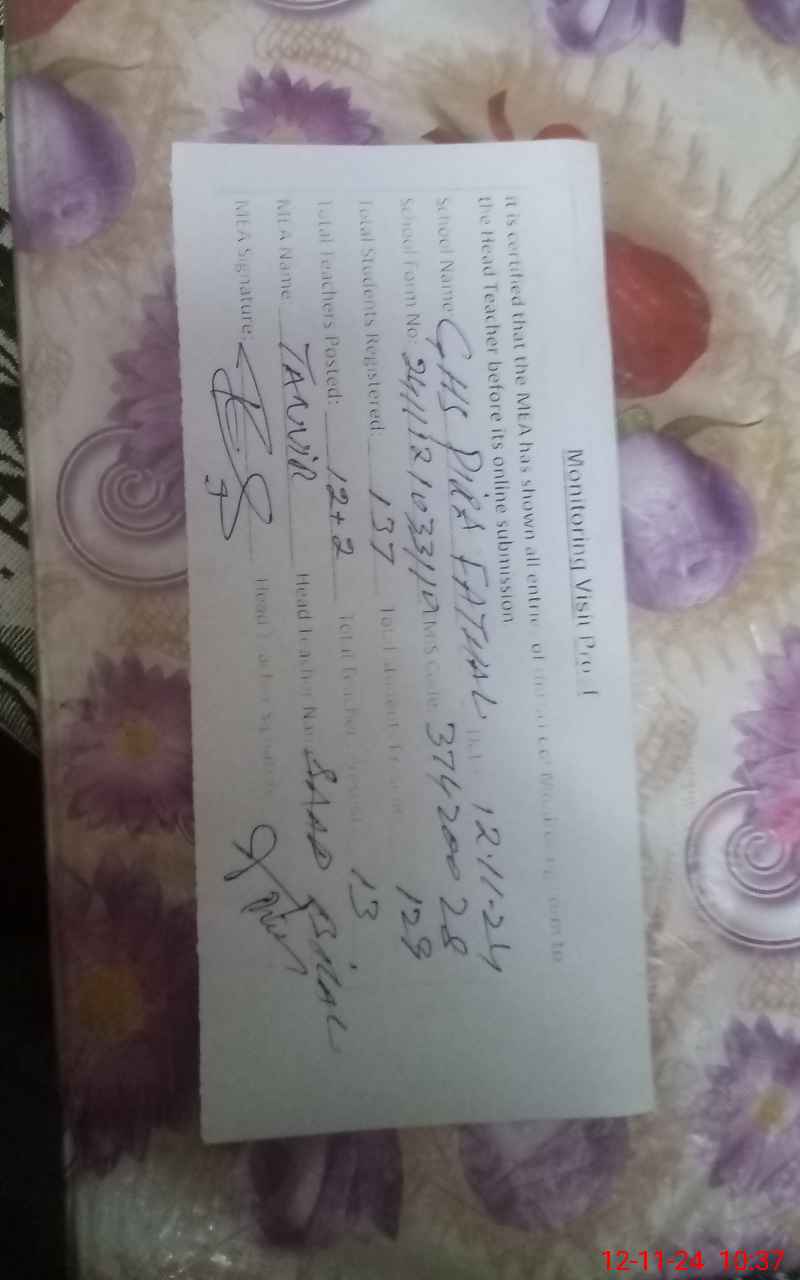 Monitoring Visit Proof
it is certified that the MEA has shown all entries of to
the Head Teacher before its online submission.
School Name: GHS PIRA FATHAL 12-11-24
School Form No: Code: 37420028
Total Students Registered: 137 Total 129
Total Teachers Posted: 12+2 Total Teachers 13
MEA Name: TANVIR Head Teacher Name SAAD BILAL
MEA Signature: Head Teacher
12-11-24 10:37